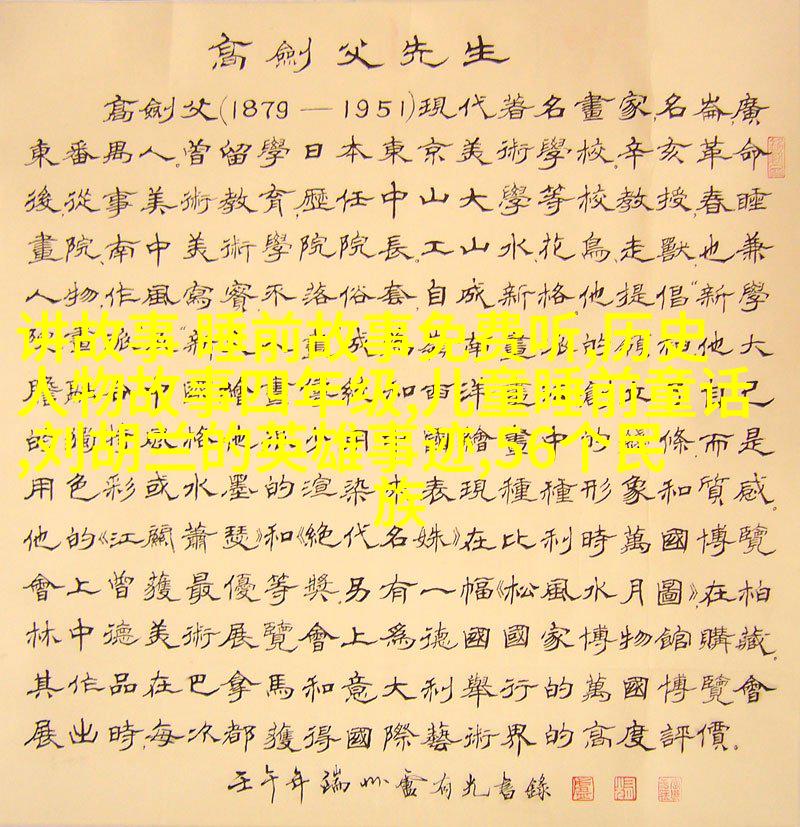 高劍父先生
高劍父(1879—1951)現代著名畫家,名崙,廣
東番禺人。曾留學日本東京美術學校。辛亥革命
後,從事美術教育,歷任中山大學等校教授,春睡
畫院、南中美術學院院長。工山水、花鳥、走獸,也兼
人物,作風寫實,不落俗套,自成新格。他提倡“新學
成為嶺南畫派的領袖他大
讲故事,睡前故事免费听,历史
膽 中國繪畫傳統和西洋畫 自己
人物故事四年级,儿童睡前童话
的獨特風格他很少用中國繪畫中的線條,而是
,刘胡兰的英雄事迹,56个民
用色彩或水墨的渲染來表現種種形象和質感。
族
他的《江關蕭瑟》和《絕代名姝》在比利時萬國博覽
會上曾獲最優等獎。另有一幅《松風水月圖》,在柏
林中德美術展覽會上為德國國家博物館購藏。
其作品在巴拿馬和意大利舉行的萬國博覽會
展出時,每次都獲得國際藝術界的高度評價。
壬午年端州盧有光書錄